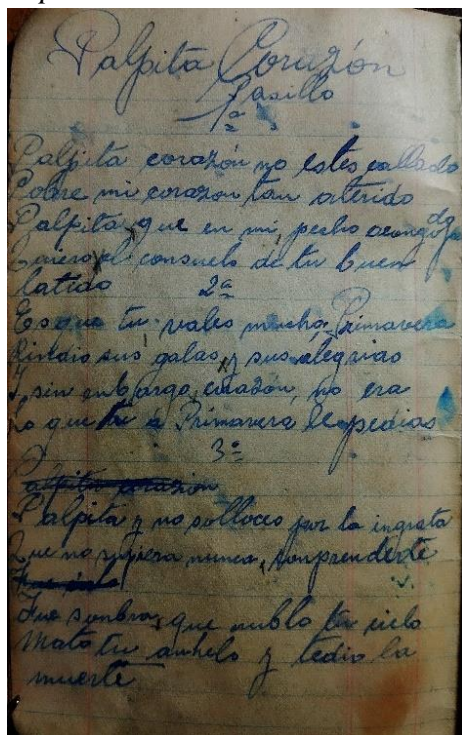 Palpita Corazón
Pasillo
1ª
Palpita corazón no estes callado
Pobre mi corazon tan aterido
Palpita que en mi pecho acongoja
do
Quiero el consuelo de tu buen
latido
2ª
Es que tu vales mucha Primavera
sus galas y sus alegrias
Y sin enbargo, corazón, no era
Lo que tu á Primavera le pedias
3ª
alpita corazón
Palpita y no solloces por la ingrata
Que no supiera nunca, conprenderte
Fue sonbra, que nublo tu cielo
Mato tu anhelo y tedio la
muerte